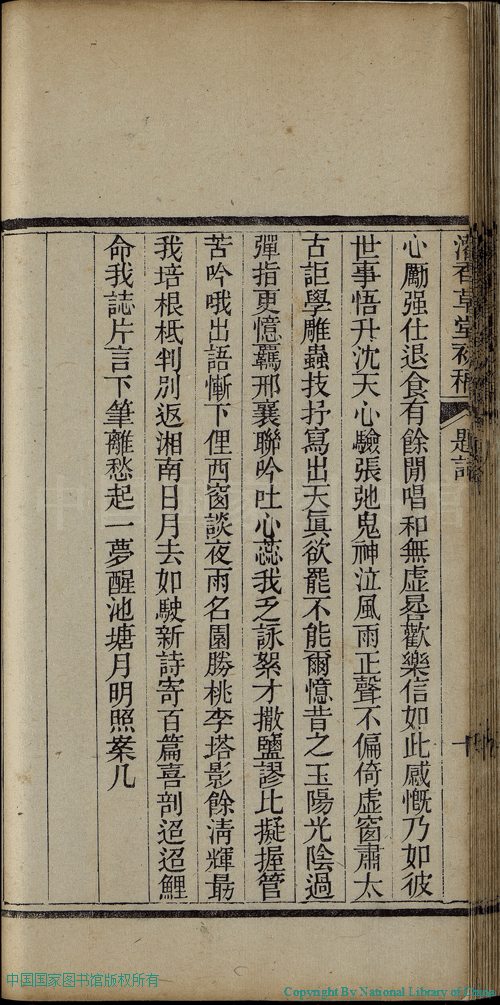 草堂初稿 題詞 十
心勵强仕退食有餘閒唱和無虛晷歡樂信如此感慨乃如彼
世事悟升沈天心驗張弛鬼神泣風雨正聲不偏倚虛窗肅太
古詎學雕蟲技抒寫出天眞欲罷不能爾憶昔之玉陽光陰過
彈指更憶羈邢襄聯吟吐心蕊我乏詠絮才撒鹽謬比擬握管
苦吟哦出語慚下俚西窗談夜雨名園勝桃李塔影餘清輝最
我培根柢判別返湘南日月去如駛新詩寄百篇喜剖迢迢鯉
命我誌片言下筆離愁起一夢醒池塘月明照案几
中国国家图书馆版权所有
Copyright By National Library of China